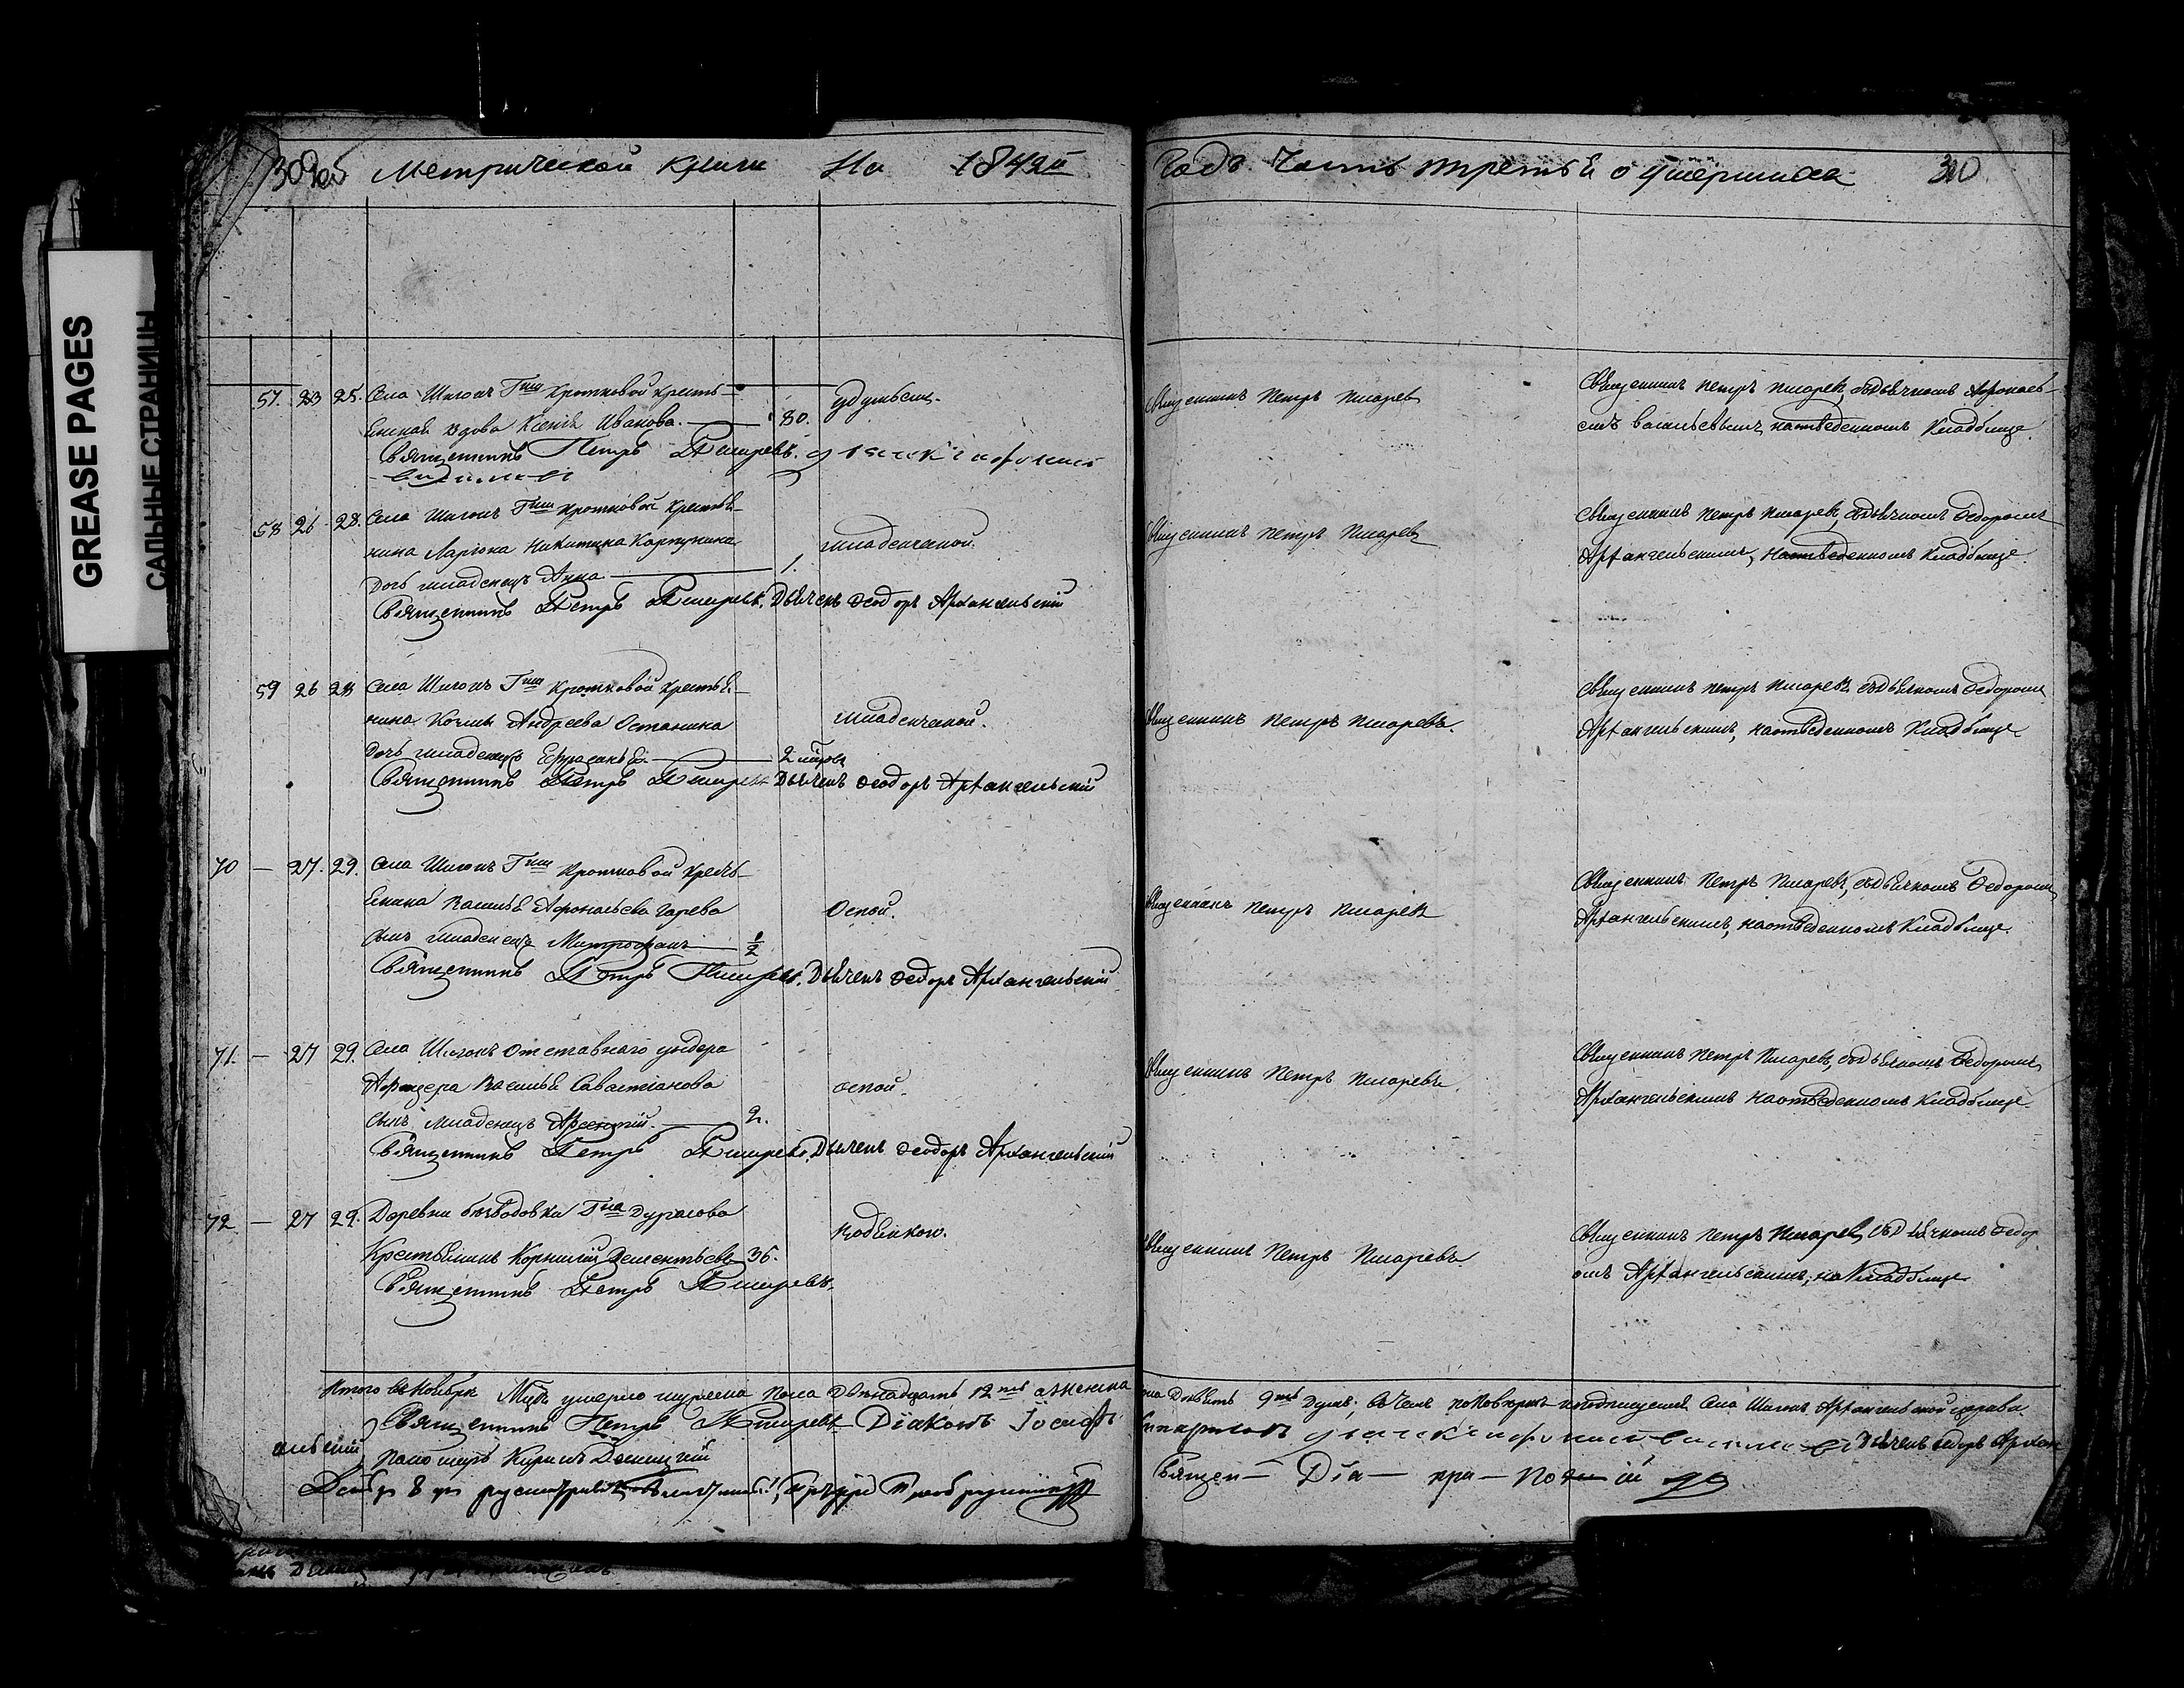 GREASE PAGES
САЛЬНЫЕ СТРАНИЦЫ
309об Метрической книги На 1842й
Годъ Часть третья о умершихъ 310
57. 23 25. Села Шигонъ Гжи Кротковой кресть-
янская вдова Ксенія Иванова. 80. удушьемъ.
Священникъ Петръ Писаревъ.
Священникъ Петръ Писаревъ
Священникъ Петръ Писаревъ, съ дьячкомъ Афонасьемъ Васильевымъ, на отведенномъ кладбище.
58 26 28. Села Шигонъ Гжи Кротковой крестья-
нина Лариона Никитина Карпунина младенческой.
дочь младенецъ Анна 1.
Священникъ Петръ Писаревъ. Дьячекъ Феодоръ Архангельскій
Священникъ Петръ Писаревъ
Священникъ Петръ Писаревъ, съ дьячкомъ Федоромъ
Архангельскимъ, на отведенномъ кладбище.
59 26 28 Села Шигонъ Гжи Кротковой крестья-
нина Андреева Останина младенческой.
дочь младенецъ 2
Священникъ Петръ Писаревъ Дьячекъ Феодоръ Архангельскій
Священникъ Петръ Писаревъ.
Священникъ Петръ Писаревъ съ дьячкомъ Федоромъ
Архангельскимъ, на отведенномъ кладбище
70 — 27. 29. Села Шигонъ Гжи Кротковой кресть-
янина Василья Афонасьева Оспой.
сынъ младенецъ Митрофанъ 1/2
Священникъ Петръ Писаревъ. Дьячекъ Федоръ Архангельскій
Священникъ Петръ Писаревъ
Священникъ Петръ Писаревъ, съ дьячкомъ Федоромъ
Архангельскимъ, на отведенномъ кладбище.
71. — 27 29. Села Шигонъ отставнаго ундера
Афицера Василья Савастіанова оспой.
сынъ младенецъ Арсентій. 2.
Священникъ Петръ Писаревъ. Дьячекъ Феодоръ Архангельскій
Священникъ Петръ Писаревъ.
Священникъ Петръ Писаревъ, съ дьячкомъ Федоромъ
Архангельскимъ на отведенномъ кладбище.
72 — 27 29. Деревни Гна Дурасова
Крестьянинъ Корнилій 36.
Священникъ Петръ Писаревъ.
Священникъ Петръ Писаревъ.
Священникъ Петръ Писаревъ, съ дьячкомъ Федор-
омъ Архангельскимъ, на кладбище
Итого въ Ноябре Мцѣ умерло мужеска пола двѣнадцать 12ть а женска
пола девять 9ть душъ; въ чемъ Села Шигонъ Архангельской церкви
Священникъ Петръ Писаревъ Діаконъ Іосифъ
Дьячекъ Федоръ Архан-
гельскій Пономарь Кирилъ
Священ— Діа— при— По